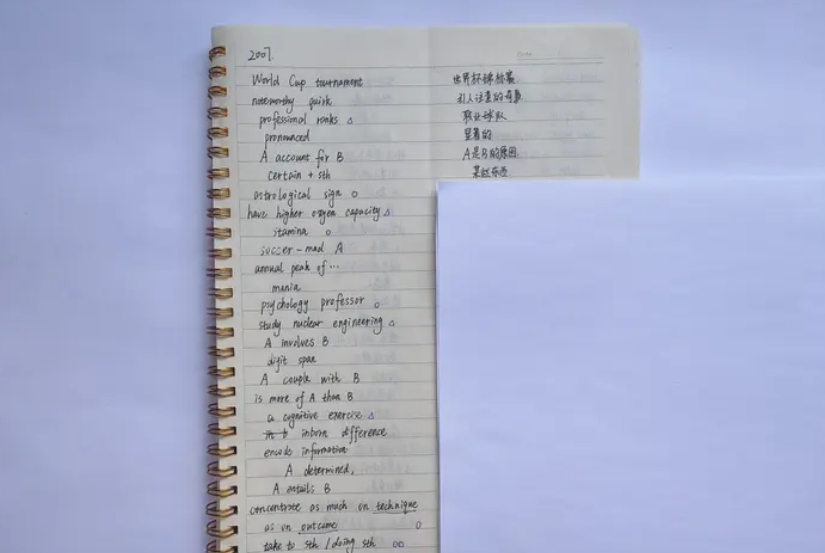 2007.
World Cup tournament 世界杯锦标赛
noteworthy quirk 引人注意的奇事
professional ranks △ 职业球队
pronounced 显著的
A account for B A是B的原因.
certain + sth 某些东西
astrological sign ○
have higher oxygen capacity △
stamina ○
soccer-mad A
annual peak of …
mania
psychology professor ○
study nuclear engineering △
A involves B
digit span
A couple with B
is more of A than B
a cognitive exercise △
inborn difference
encode information
A determined,
A entails B
concentrate as much on technique
as on outcome ○
take to sth / doing sth ○○